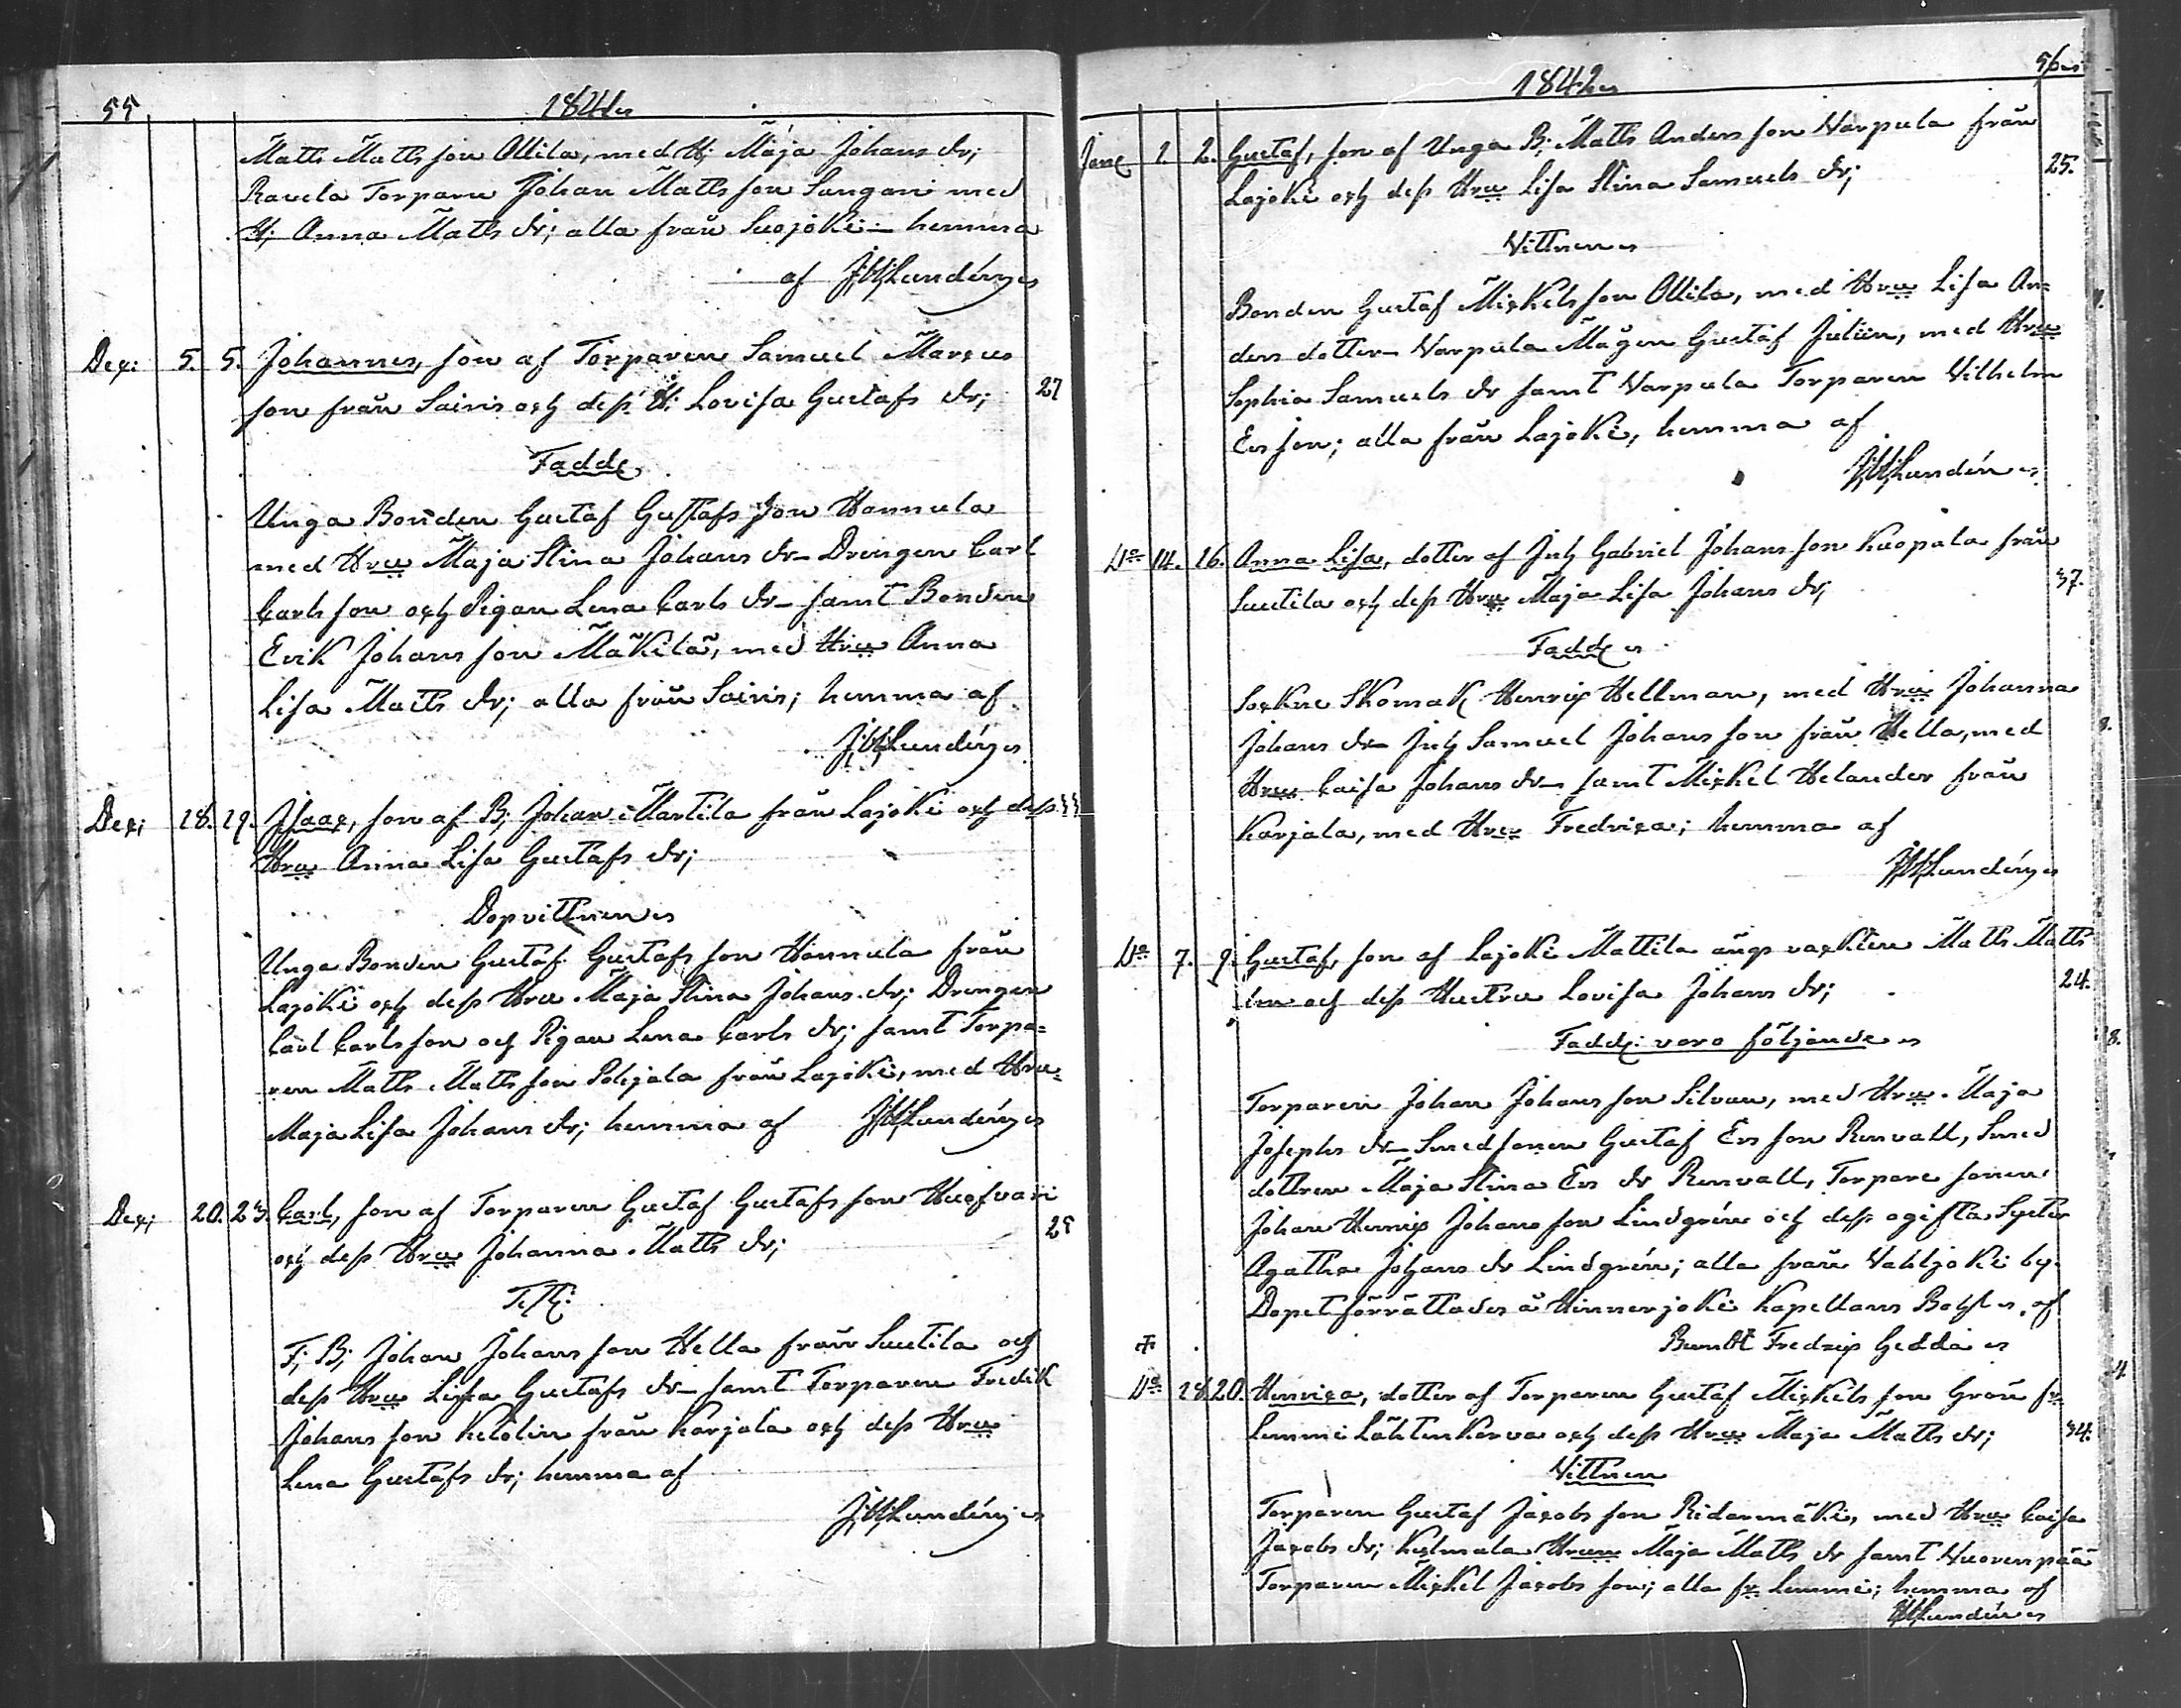 55
1841
Matts Matts son Ollila, med H; Maja Johans dr;
Torparen Johan Matts son med
H; Anna Matts dr; alla från hemma
af Lundén
Dec: 5. 5. Johannes, son af Torparen Samuel Marcus
son från Sairis och dess H: Lovisa Gustafs dr; 27
Fadd
Unga Bonden Gustaf Gustafs son Hannula
med Hru Maja Stina Johans dr – Drengen Carl
Carls son och Pigan Lena Carls dr – samt Bonden
Erik Johans son Mäkilä, med Hru Anna
Lisa Matts dr; alla från Sairis; hemma af
Lundén
Dec; 28. 29. Isaac, son af B; Johan Martila från Lajoki och dess
Hru Anna Lisa Gustafs dr;
Dopvittnen
Unga Bonden Gustaf Gustafs son Hannula från
Lajoki och dess Hru Maja Stina Johans dr; Drengen
Carl Carls son och Pigan Lena Carls dr; samt Torpa=
ren Matts Matts son Pohjala från Lajoki, med Hru
Maja Lisa Johans dr; hemma af Lundén
Dec; 20. 23. Carl, son af Torparen Gustaf Gustafs son
och dess Hru Johanna Matts dr;
Test:
F; B; Johan Johans son Hella från Suutila och
dess Hru Lisa Gustafs dr – samt Torparen Fredik
Johans son från Karjala och dess Hru
Lena Gustafs dr; hemma af
Lundén
1842
56
1. 2. Gustaf, son af Unga B; Matts Anders son Varpula från
Lajoki och dess Hru Lisa Stina Samuels dr; 25.
Vittnen
Bonden Gustaf Mickels son Ollila, med Hru Lisa An=
ders dotter – Varpula Mågen Gustaf Julin, med Hru
Sophia Samuels dr samt Varpula Torparen Vilhelm
Ers son; alla från Lajoki, hemma af
Lundén
Do 14. 16. Anna Lisa, dotter af Inh Gabriel Johans son Kuopala från
Suutila och dess Hru Maja Lisa Johans dr; 37.
Fadd
Sockne Skomak Henric Hellman, med Hru Johanna
Johans dr – Inh Samuel Johans son från Hella, med
Hru Caisa Johans dr – samt Mickel Helander från
Karjala, med Hru Fredrica; hemma af
Lundén
Do 7. 9. Gustaf, son af Lajoki Mattila Matts Matts
son och dess Hustru Lovisa Johans dr; 24.
Fadd: voro följande
Torparen Johan Johans son Silvan, med Hru Maja
Josephs dr – Smedsonen Gustaf Ers son Renvall, Smed
dottren Maja Stina Ers dr Renvall, Torpare sonen
Johan Henric Johans son Lindgrén och dess ogifta Syster
Agatha Johans dr Lindgrén; alla från by.
Dopet förrättades å Hinnerjoki Kapellans af
Fredric Gedda
Do 18. 20. Henrica, dotter af Torparen Gustaf Mickels son Grön fr
Lemmi Lähtenkorva och dess Hru Maja Matts dr; 34.
Vittnen
Torparen Gustaf Jacobs son Ridarmäki, med Hru Caisa
Jacobs dr; Hrun Maja Matts dr samt Vuorenpää
Torparen Mickel Jacobs son; alla fr Lemmi; hemma af
Lundén